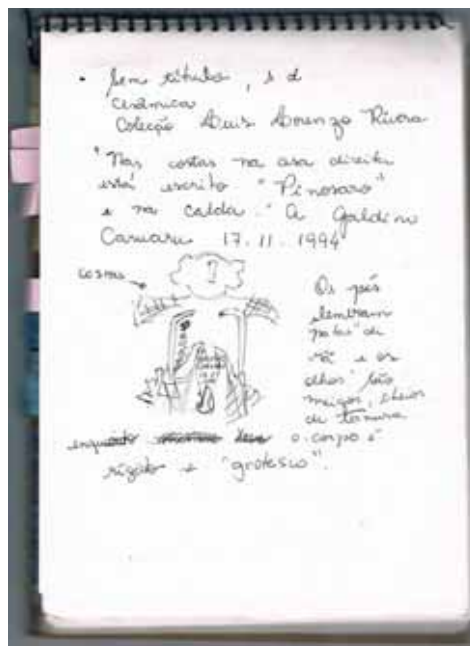 • Sem título, s d
Cerâmica
Colecção Luis Lorenzo Rivera
"Nas costas na asa direita
está escrito "Pinosaro"
e na calda "A Galdino
Caruaru 17.11.1994
costas
Os pés
lembram
patas de
rã e os
olhos são
meigos, cheios
de ternura
enquanto o corpo é
rígido e "grotesco".